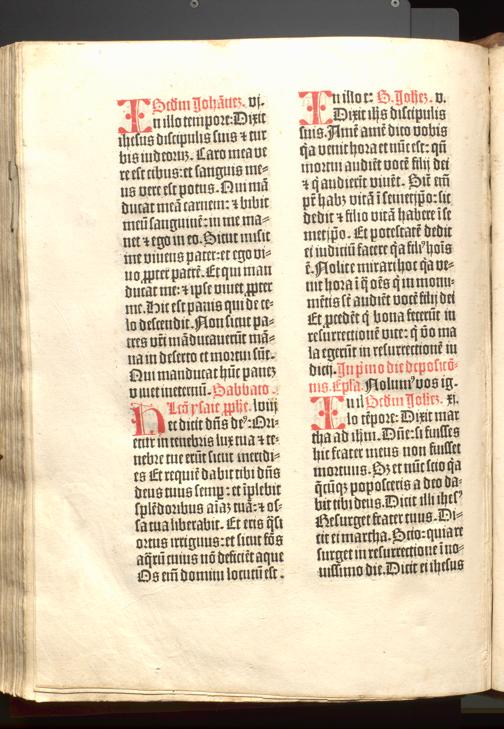 Scdm Johānez. vj.
In illo tempore: Dixit
ihesus discipulis suis ⁊ tur
bis iudeorū. Caro mea ve
re est cibus: et sanguis me⸗
us vere est potus. Qui mā
ducat meā carnem: ⁊ bibit
meū sanguinē: in me ma⸗
net ⁊ ego in eo. Sicut misit
me viuens pater: et ego vi⸗
uo ꝓpter patrē. Et qui man
ducat me: ⁊ ipse viuet ꝓpter
me. Hic est panis qui de ce⸗
lo descendit. Non sicut pa⸗
tres vr̄i māducauerūt mā⸗
na in deserto et mortui sūt.
Qui manducat hūc panez
viuet ineternū. Sabbato.
Hec ysaie ꝓphe. lviij
ec dicit dn̄s deꝰ: Ori⸗
etur in tenebris lux tua ⁊ te⸗
nebre tue erūt sicut meridi⸗
es Et requiē dabit tibi dn̄s
deus tuus semꝑ: et īplebit
splēdoribus aīaz tuā: ⁊ os⸗
sa tua liberabit. Et eris q̄si
ortus irriguus: et sicut fōs
aq̄rū cuius nō deficiēt aque
Os eīn domini locutū est.
In illo t: S. Johez. v.
Dixit ihs discipulis
suis. Amē amē dico vobis
qꝛ venit hora et nūc est: qn̄
mortui audiēt vocē filij dei
⁊ q̄ audierīt viuēt. Sic̄ eīn
pr̄ habz vitā ī semetip̄o: sic
dedit ⁊ filio vitā habere ī se
metip̄o. Et potestatē dedit
ei iudiciū facere qꝛ filꝰ hoīs
ē. Nolite mirari hoc qꝛ ve⸗
nit hora ī q̄ oēs q̄ in monu⸗
mētis sē audiēt vocē filij dei
Et ꝓcedēt q̄ bona fecerūt in
resurrectionē vite: q̄ v̄o ma
la egerūt in resurrectionē in
dicij. In pīmo die depositō⸗
nis. Epl̄a. Nolumꝰ vos ig.
Secdm Johez. xj.
In il
lo tēpore: Dixit mar
tha ad ihm. Dn̄e: si fuisses
hic frater meus non fuisset
mortuus. Sz et nūc scio qꝛ
q̄cūqꝫ poposceris a deo da⸗
bit tibi deus. Dicit illi ihesꝰ
Resurget frater tuus. Di⸗
cit ei martha. Scio: quia re
surget in resurrectione ī no⸗
uissimo die. Dicit ei ihesus